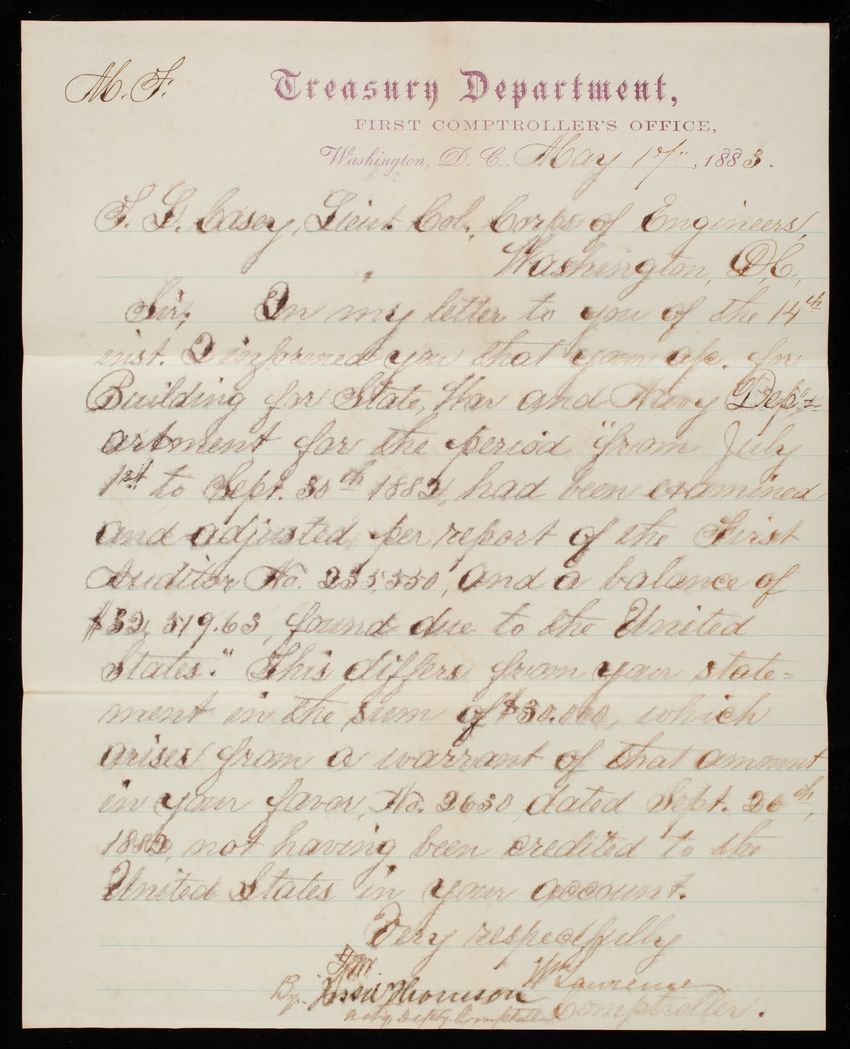 M. F.
Treasury Department,
FIRST COMPTROLLER'S OFFICE,
Washington, D. C., May 17", 1883.
T. L. Casey, Lieut. Col. Corps of Engineers,
Washington, D.C.,
Sir; In my letter to you of the 14th
inst. I informed you that your a/c. for
Building for State, War and Navy Dep-
artment for the period "from July
1st to Sept. 30th 1882, had been examined
and adjusted, per report of the First
Auditor No. 235,550, and a balance of
$32,519.63, found due to the United
States." This differs from your state=
ment in the sum of $30.000, which
arises from a warrant of that amount
in your favor, No. 2630, dated Sept. 26th,
1882, not having been credited to the
United States in your account.
Very respectfully
Wm Lawrence
By. Thomson Comptroller.